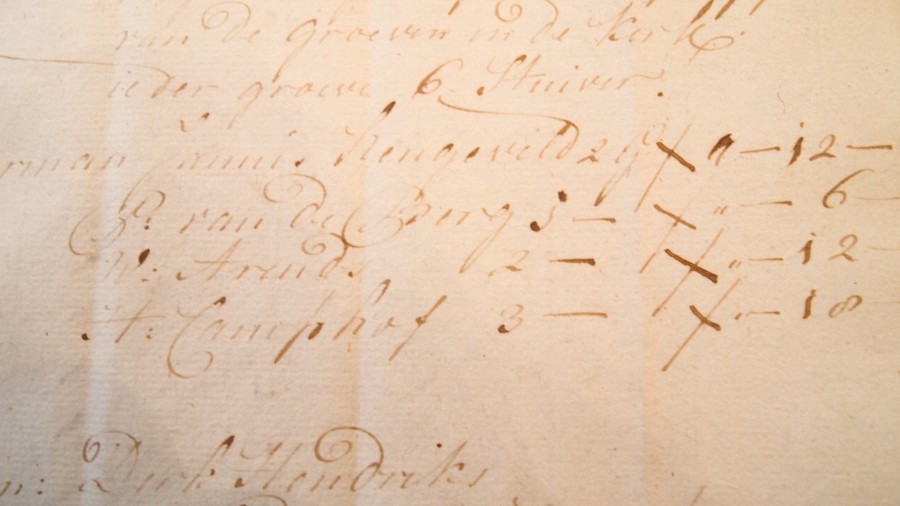 van de groeven in de Kerk
ieder groeve 6 Stuiver.
rman Jannis Hengeveld 2 gr " - 12 -
P: van de Berg 1 - " - 6 -
W: Arends 2 - " - 12 -
A: Camphof 3 - " - 18 -
n: Derk Hendriks